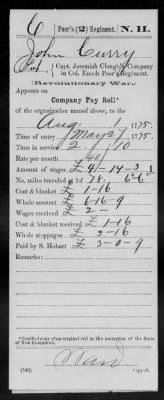 6 | Poor's (2) Regiment. | N. H.
John Curry
Pvt., Capt. Jeremiah Clough's Company
in Col. Enoch Poor's Regiment.
(Revolutionary War.)
Appears on
Company Pay Roll*
of the organization named above, to the
Aug 1, 1775.
Time of entry May 27, 1775.
Time of service 2 / 10
Rate per month 40/
Amount of wages £4-14-3
No. miles traveled @ 1d 78. 6s 6d
Coat & blanket £1-16
Whole amount £6-16-9
Wages received £2 -
Coat & blanket received £1-16
Whole stoppages £3-16
Paid by S. Hobart £3-0-9
Remarks:
*Certified copy of an original roll in the possession of the State
of New Hampshire.
(545) Copyist.